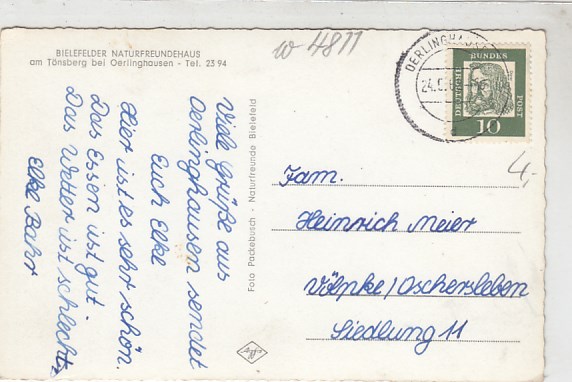 BIELEFELDER NATURFREUNDEHAUS
am Tönsberg bei Oerlinghausen - Tel. 23 94
w 4811
Viele Grüße aus
Oerlinghausen sendet
Euch Elke
Hier ist es sehr schön.
Das Essen ist gut.
Das Wetter ist schlecht,
Elke Bahr
Foto Packebusch - Naturfreunde Bielefeld
OERLINGHAUSEN
DEUTSCHE
BUNDES
POST
10
4,-
Fam.
Heinrich Meier
Völpke/Oschersleben
Siedlung 11